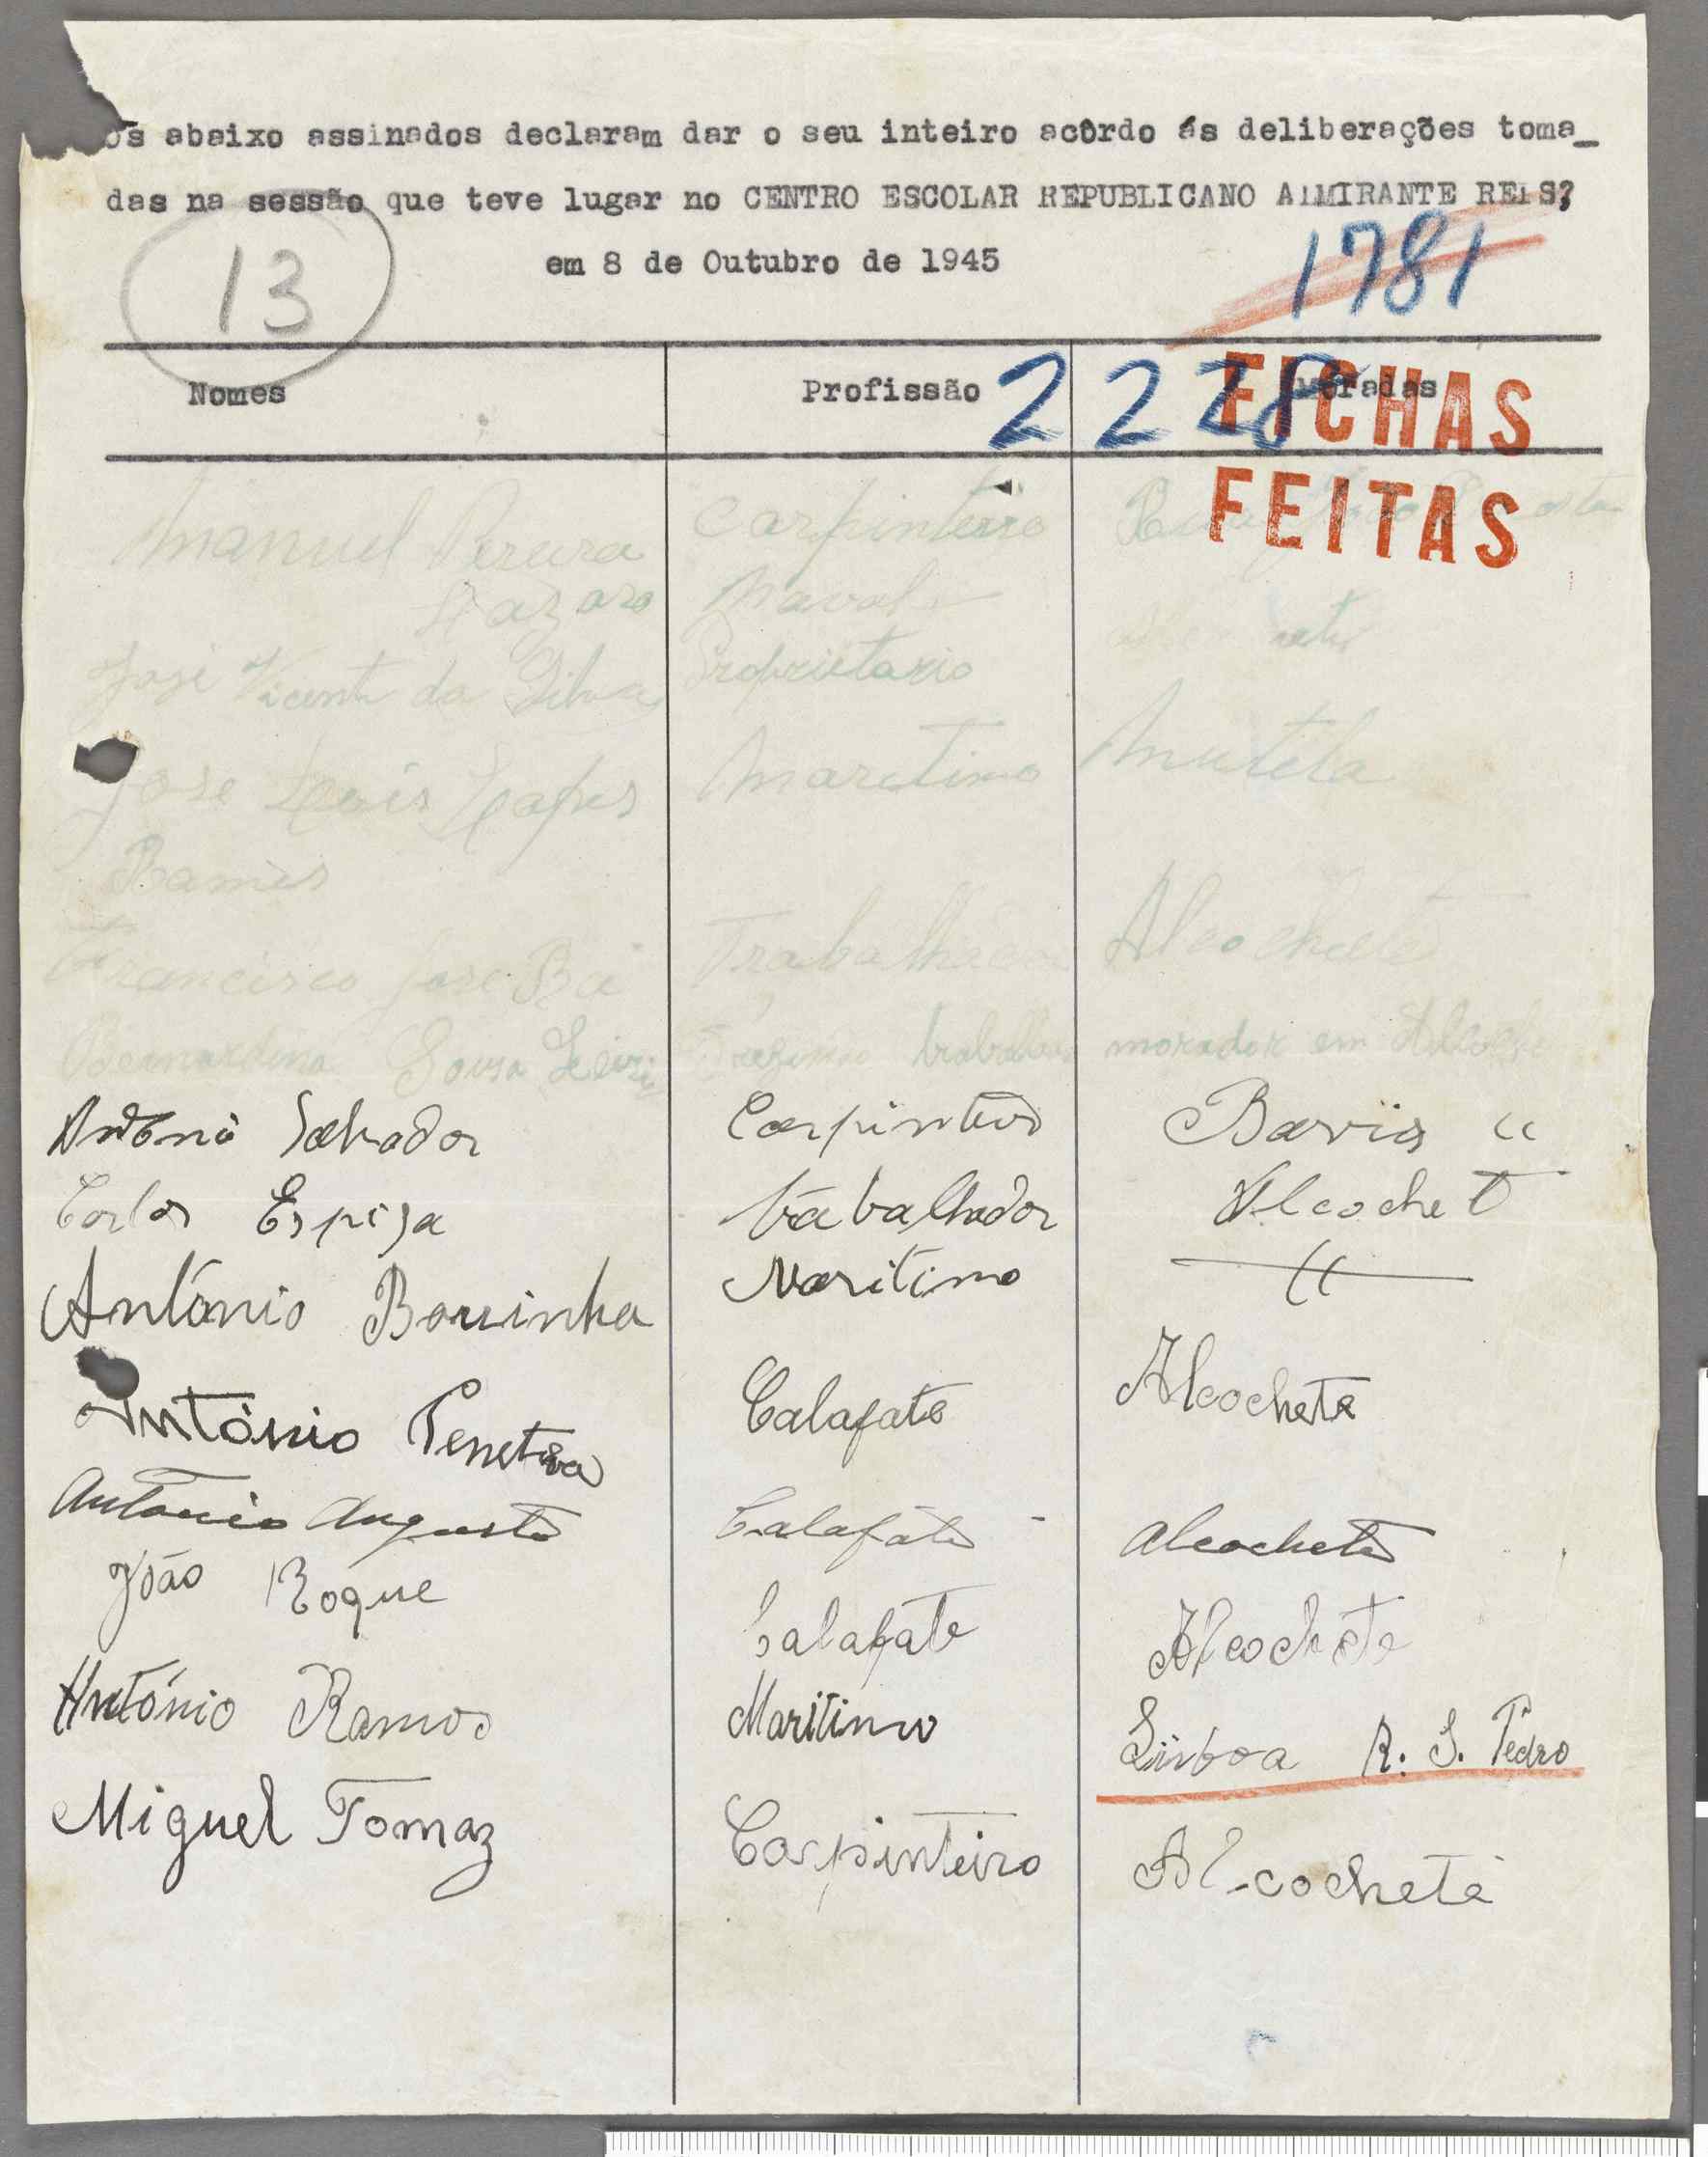 Os abaixo assinados declaram dar o seu inteiro acôrdo ás deliberações toma_
das na sessão que teve lugar no CENTRO ESCOLAR REPUBLICANO ALMIRANTE REIS,
em 8 de Outubro de 1945
13
1781
2228
Nomes Profissão Moradas
FICHAS
FEITAS
Manuel Pereira Carpinteiro Rua
Lazaro Naval
José Vicente da Silva Proprietario
Jose Luis Lopes Maretimo Mutela
Ramos
Francisco Jose Trabalhador Alcochete
Bernardino Sousa trabalhador morador em
António Salvador Carpinteiro "
Carlos Espiga trabalhador Alcochete
António Maritimo "
António Calafate Alcochete
Antonio Augusto Calafate Alcochete
João Roque Calafate Alcochete
António Ramos Maritimo Lisboa R. S. Pedro
Miguel Tomaz Carpinteiro Alcochete